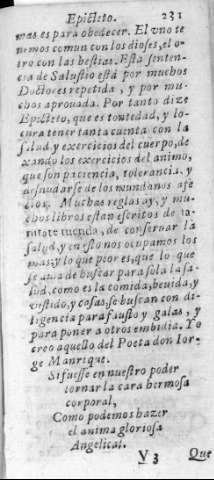 Epicteto. 231
mas es para obedecer. El vno te
nemos comun con los dioses, el o-
tro con las bestias. Esta senten-
cia de Salustio està por muchos
Doctores repetida, y por mu-
chos aprouada. Por tanto dize
Epicteto, que es tontedad, y lo-
cura tener tanta cuenta con la
salud, y exercicios del cuerpo, de
xando los exercicios del animo,
que son paciencia, tolerancia, y
desnudarse de los mundanos afe
ctos. Muchas reglas ay, y mu-
chos libros estan escritos de
de conseruar la
salud, y en esto nos ocupamos los
mas: y lo que peor es, que lo que
se auia de buscar para sola la sa-
lud, como es la comida, beuida, y
vestido, y casas, se buscan con di-
ligencia para fausto y galas, y
para poner a otros embidia. Yo
creo aquello del Poeta don Ior-
ge Manrique.
Si fuesse en nuestro poder
tornar la cara hermosa
corporal,
Como podemos hazer
el anima gloriosa
Angelical.
V 3 Que